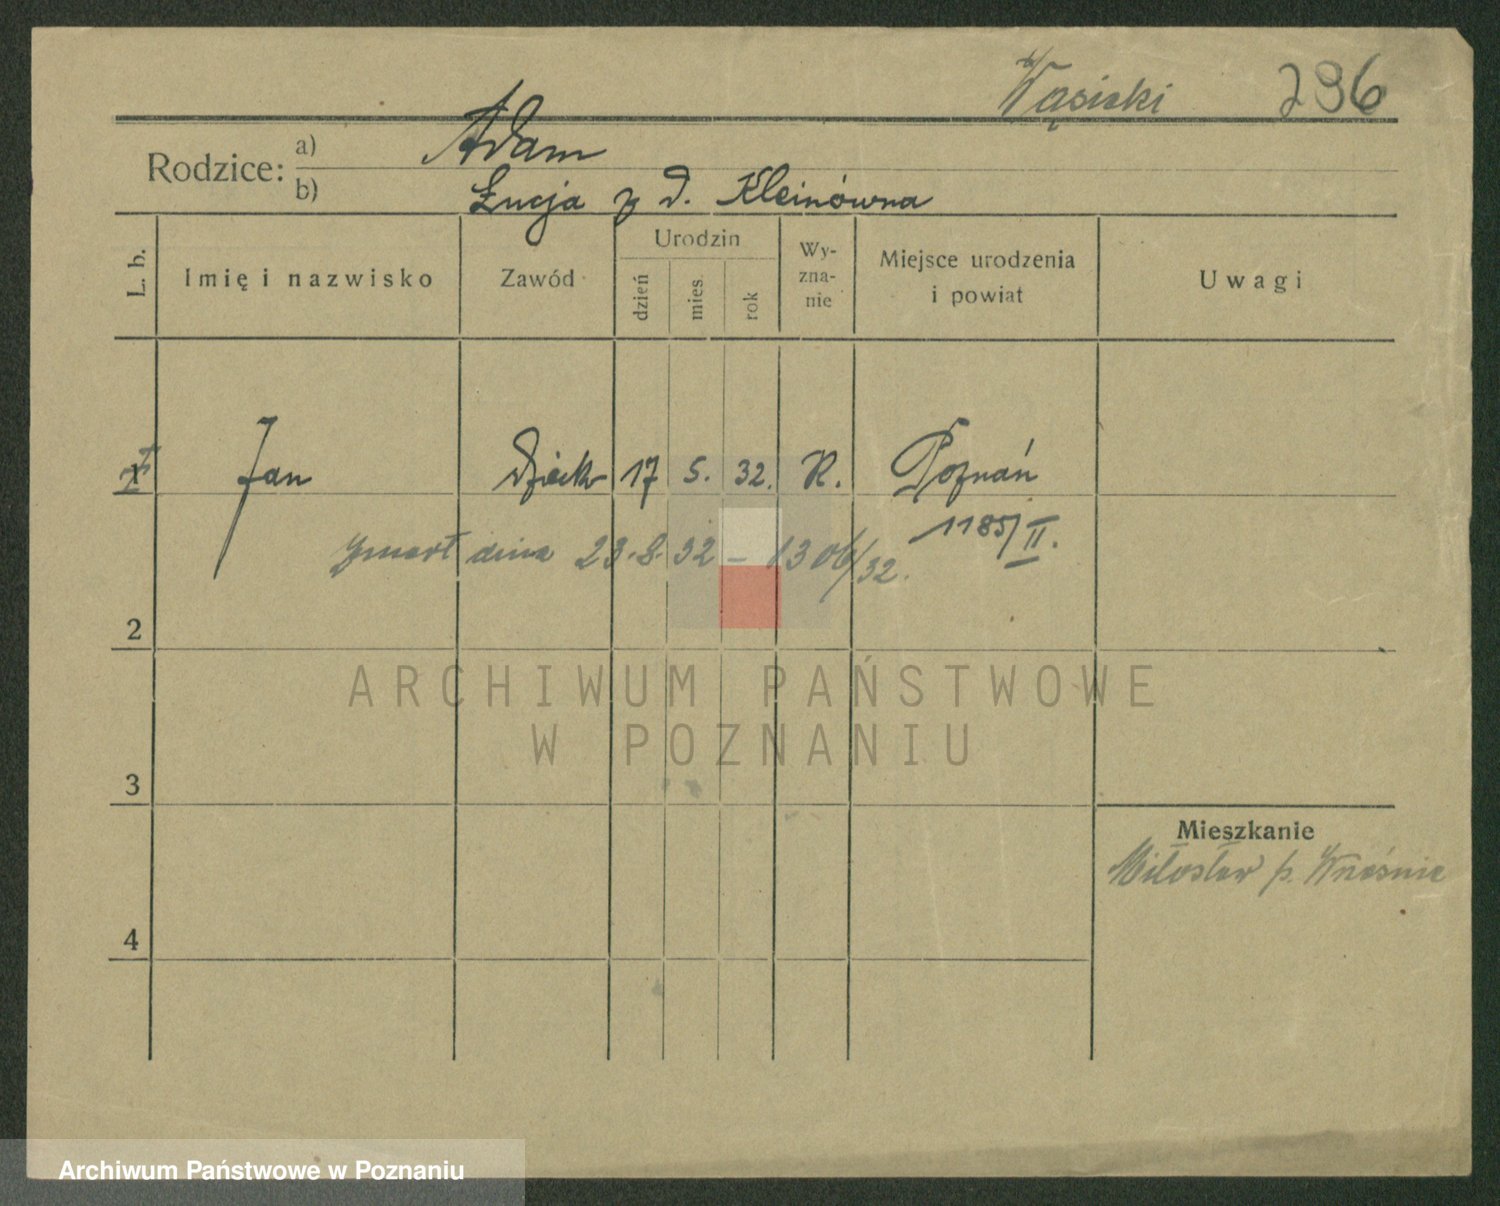 Wąsicki 296
Rodzice: a) Adam
b) Łucja z d. Kleinówna
L. b. Imię i nazwisko Zawód Urodzin dzień mies. rok Wy-zna-nie Miejsce urodzenia i powiat Uwagi
1 Jan Dziecko 17 5. 32. R. Poznań
1185/II.
zmarł dnia 23.8.32 – 1306/32.
2
ARCHIWUM PAŃSTWOWE
W POZNANIU
3
Mieszkanie
Miłosław p. Września
4
Archiwum Państwowe w Poznaniu